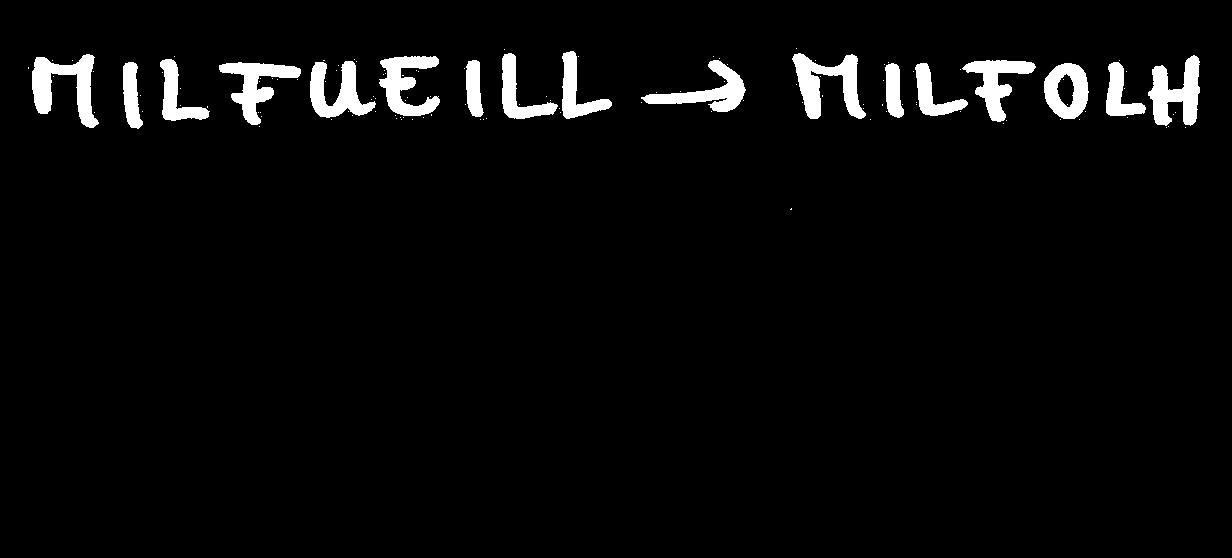 MILFUEILL → MILFOLH